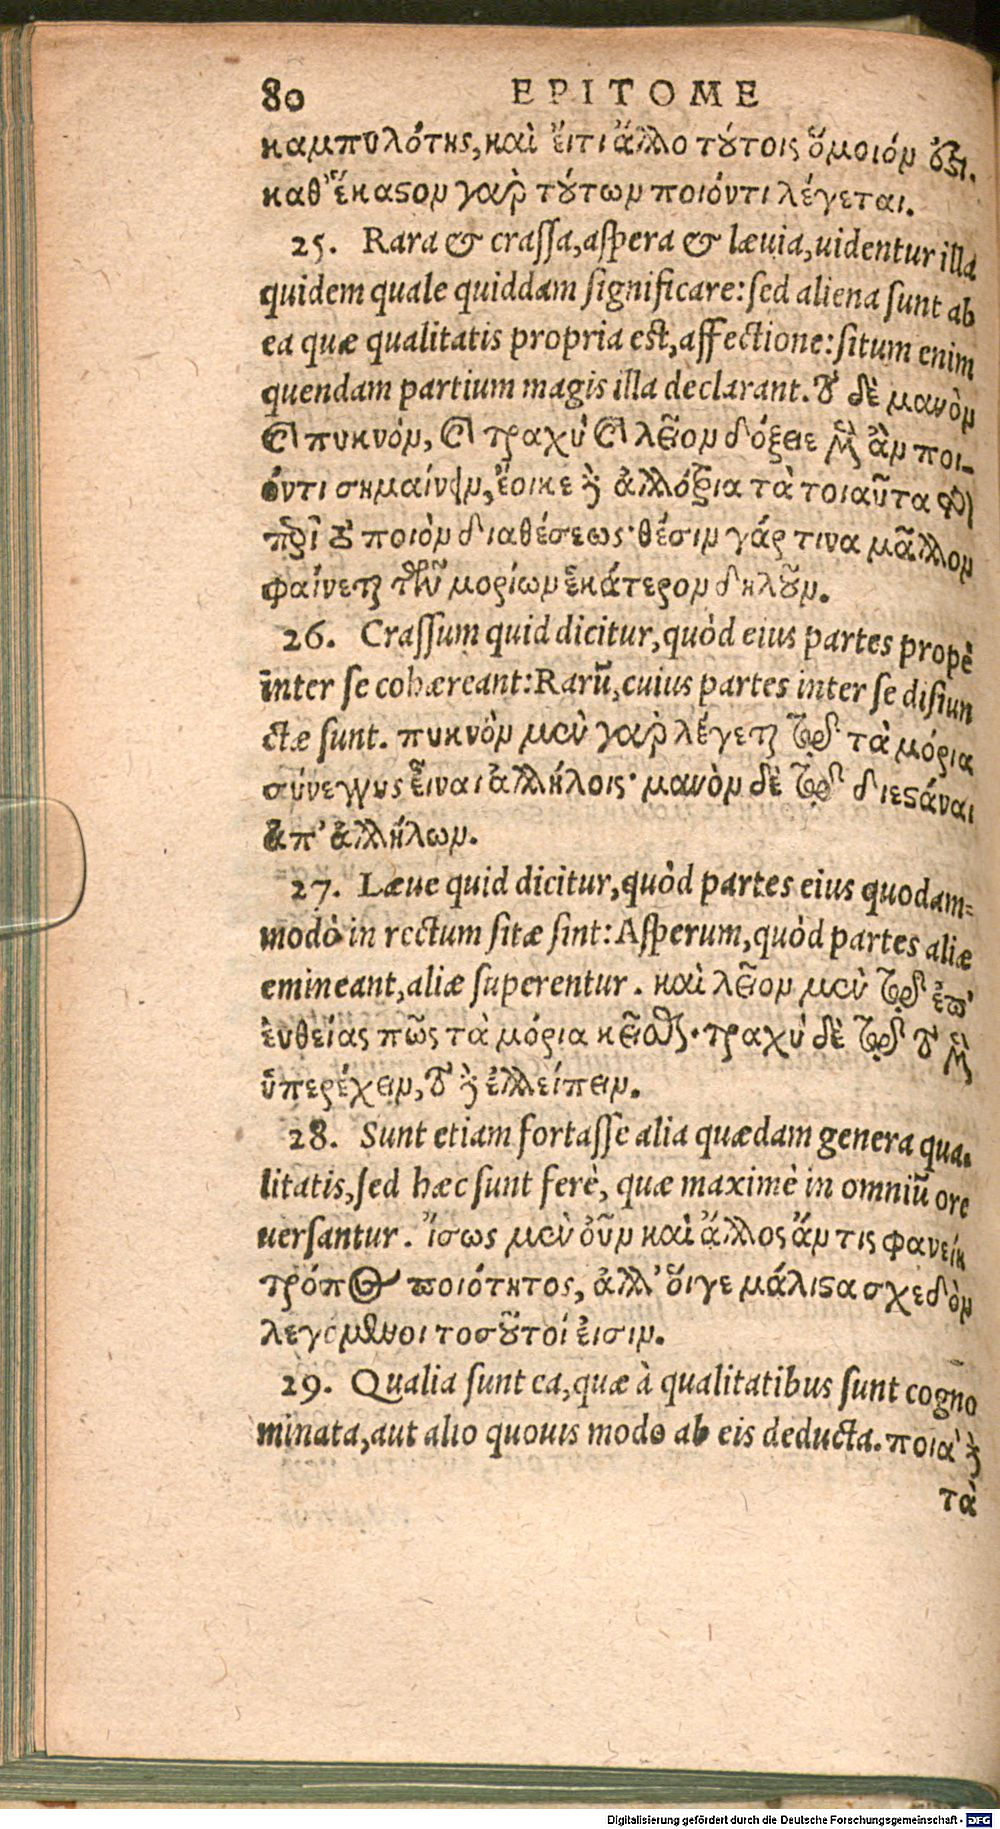 80 EPITOME
καμπυλότης, καὶ εἴ τι ἄλλο τούτοις ὅμοιόν ἐστι.
καθ' ἕκαστον γὰρ τούτων ποιόν τι λέγεται.
25. Rara & crassa, aspera & læuia, uidentur illa
quidem quale quiddam significare: sed aliena sunt ab
ea quæ qualitatis propria est, affectione: situm enim
quendam partium magis illa declarant. τὸ δὲ μανὸν
καὶ πυκνόν, καὶ τραχὺ καὶ λεῖον δόξειε μὲν ἂν ποι-
όν τι σημαίνειν, ἔοικε δὲ ἀλλότρια τὰ τοιαῦτα εἶναι
περὶ τὸ ποιὸν διαθέσεως· θέσιν γάρ τινα μᾶλλον
φαίνεται τῶν μορίων ἑκάτερον δηλοῦν.
26. Crassum quid dicitur, quòd eius partes propè
inter se cohæreant: Rarū, cuius partes inter se disiun
ctæ sunt. πυκνὸν μὲν γὰρ λέγεται τῷ τὰ μόρια
σύνεγγυς εἶναι ἀλλήλοις· μανὸν δὲ τῷ διεστάναι
ἀπ' ἀλλήλων.
27. Læue quid dicitur, quòd partes eius quodam=
modò in rectum sitæ sint: Asperum, quòd partes aliæ
emineant, aliæ superentur. καὶ λεῖον μὲν τῷ ἐπ'
εὐθείας πῶς τὰ μόρια κεῖσθαι· τραχὺ δὲ τῷ τὸ μὲν
ὑπερέχειν, τὸ δὲ ἐλλείπειν.
28. Sunt etiam fortasse alia quædam genera qua-
litatis, sed hæc sunt ferè, quæ maximè in omniū ore
uersantur. ἴσως μὲν οὖν καὶ ἄλλος ἄν τις φανείη
τρόπος ποιότητος, ἀλλ' οἵ γε μάλιστα σχεδὸν
λεγόμενοι τοσοῦτοί εἰσιν.
29. Qualia sunt ea, quæ à qualitatibus sunt cogno
minata, aut alio quouis modo ab eis deducta. ποιὰ δὲ
τὰ
Digitalisierung gefördert durch die Deutsche Forschungsgemeinschaft - DFG